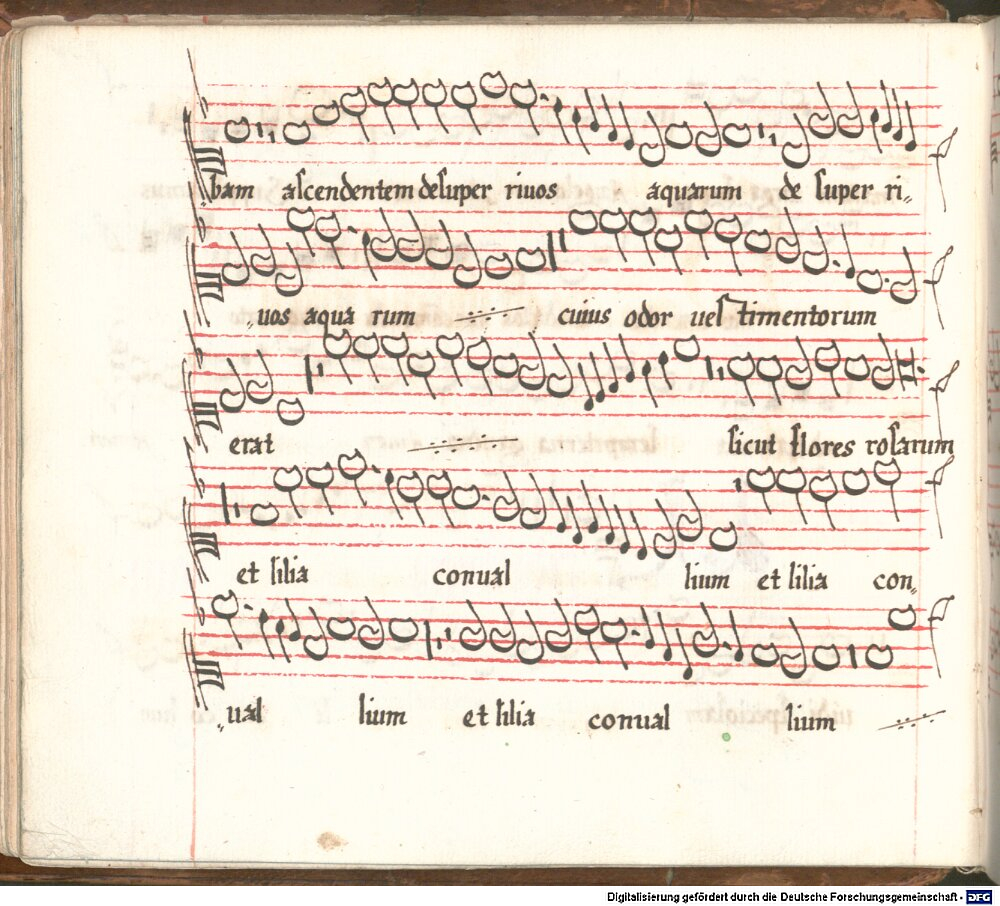 bam ascendentem desuper rivos aquarum de super ri„
uos aqua rum cuius odor uestimentorum
erat sicut flores rosarum
et lilia conual lium et lilia con„
„ual lium et lilia conual lium
Digitalisierung gefördert durch die Deutsche Forschungsgemeinschaft - DFG